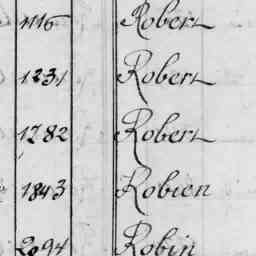 1116 Robert
1231 Robert
1782 Robert
1843 Robien
2094 Robin